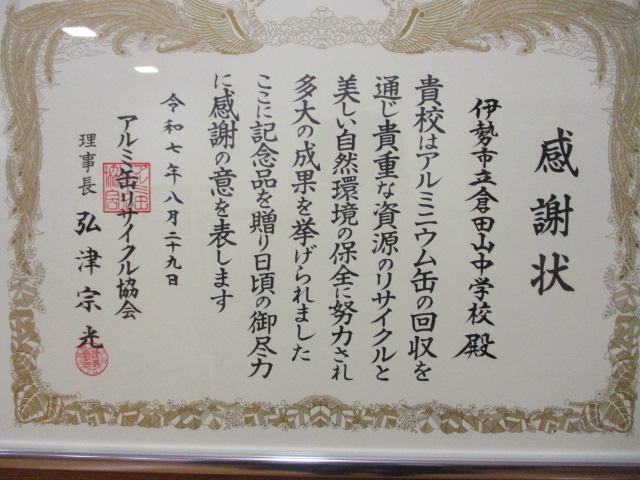 感謝状
伊勢市立倉田山中学校 殿
貴校はアルミニウム缶の回収を
通じ貴重な資源のリサイクルと
美しい自然環境の保全に努力され
多大の成果を挙げられました
ここに記念品を贈り日頃の御尽力
に感謝の意を表します
令和七年八月二十九日
アルミ缶リサイクル協会
理事長 弘津宗光